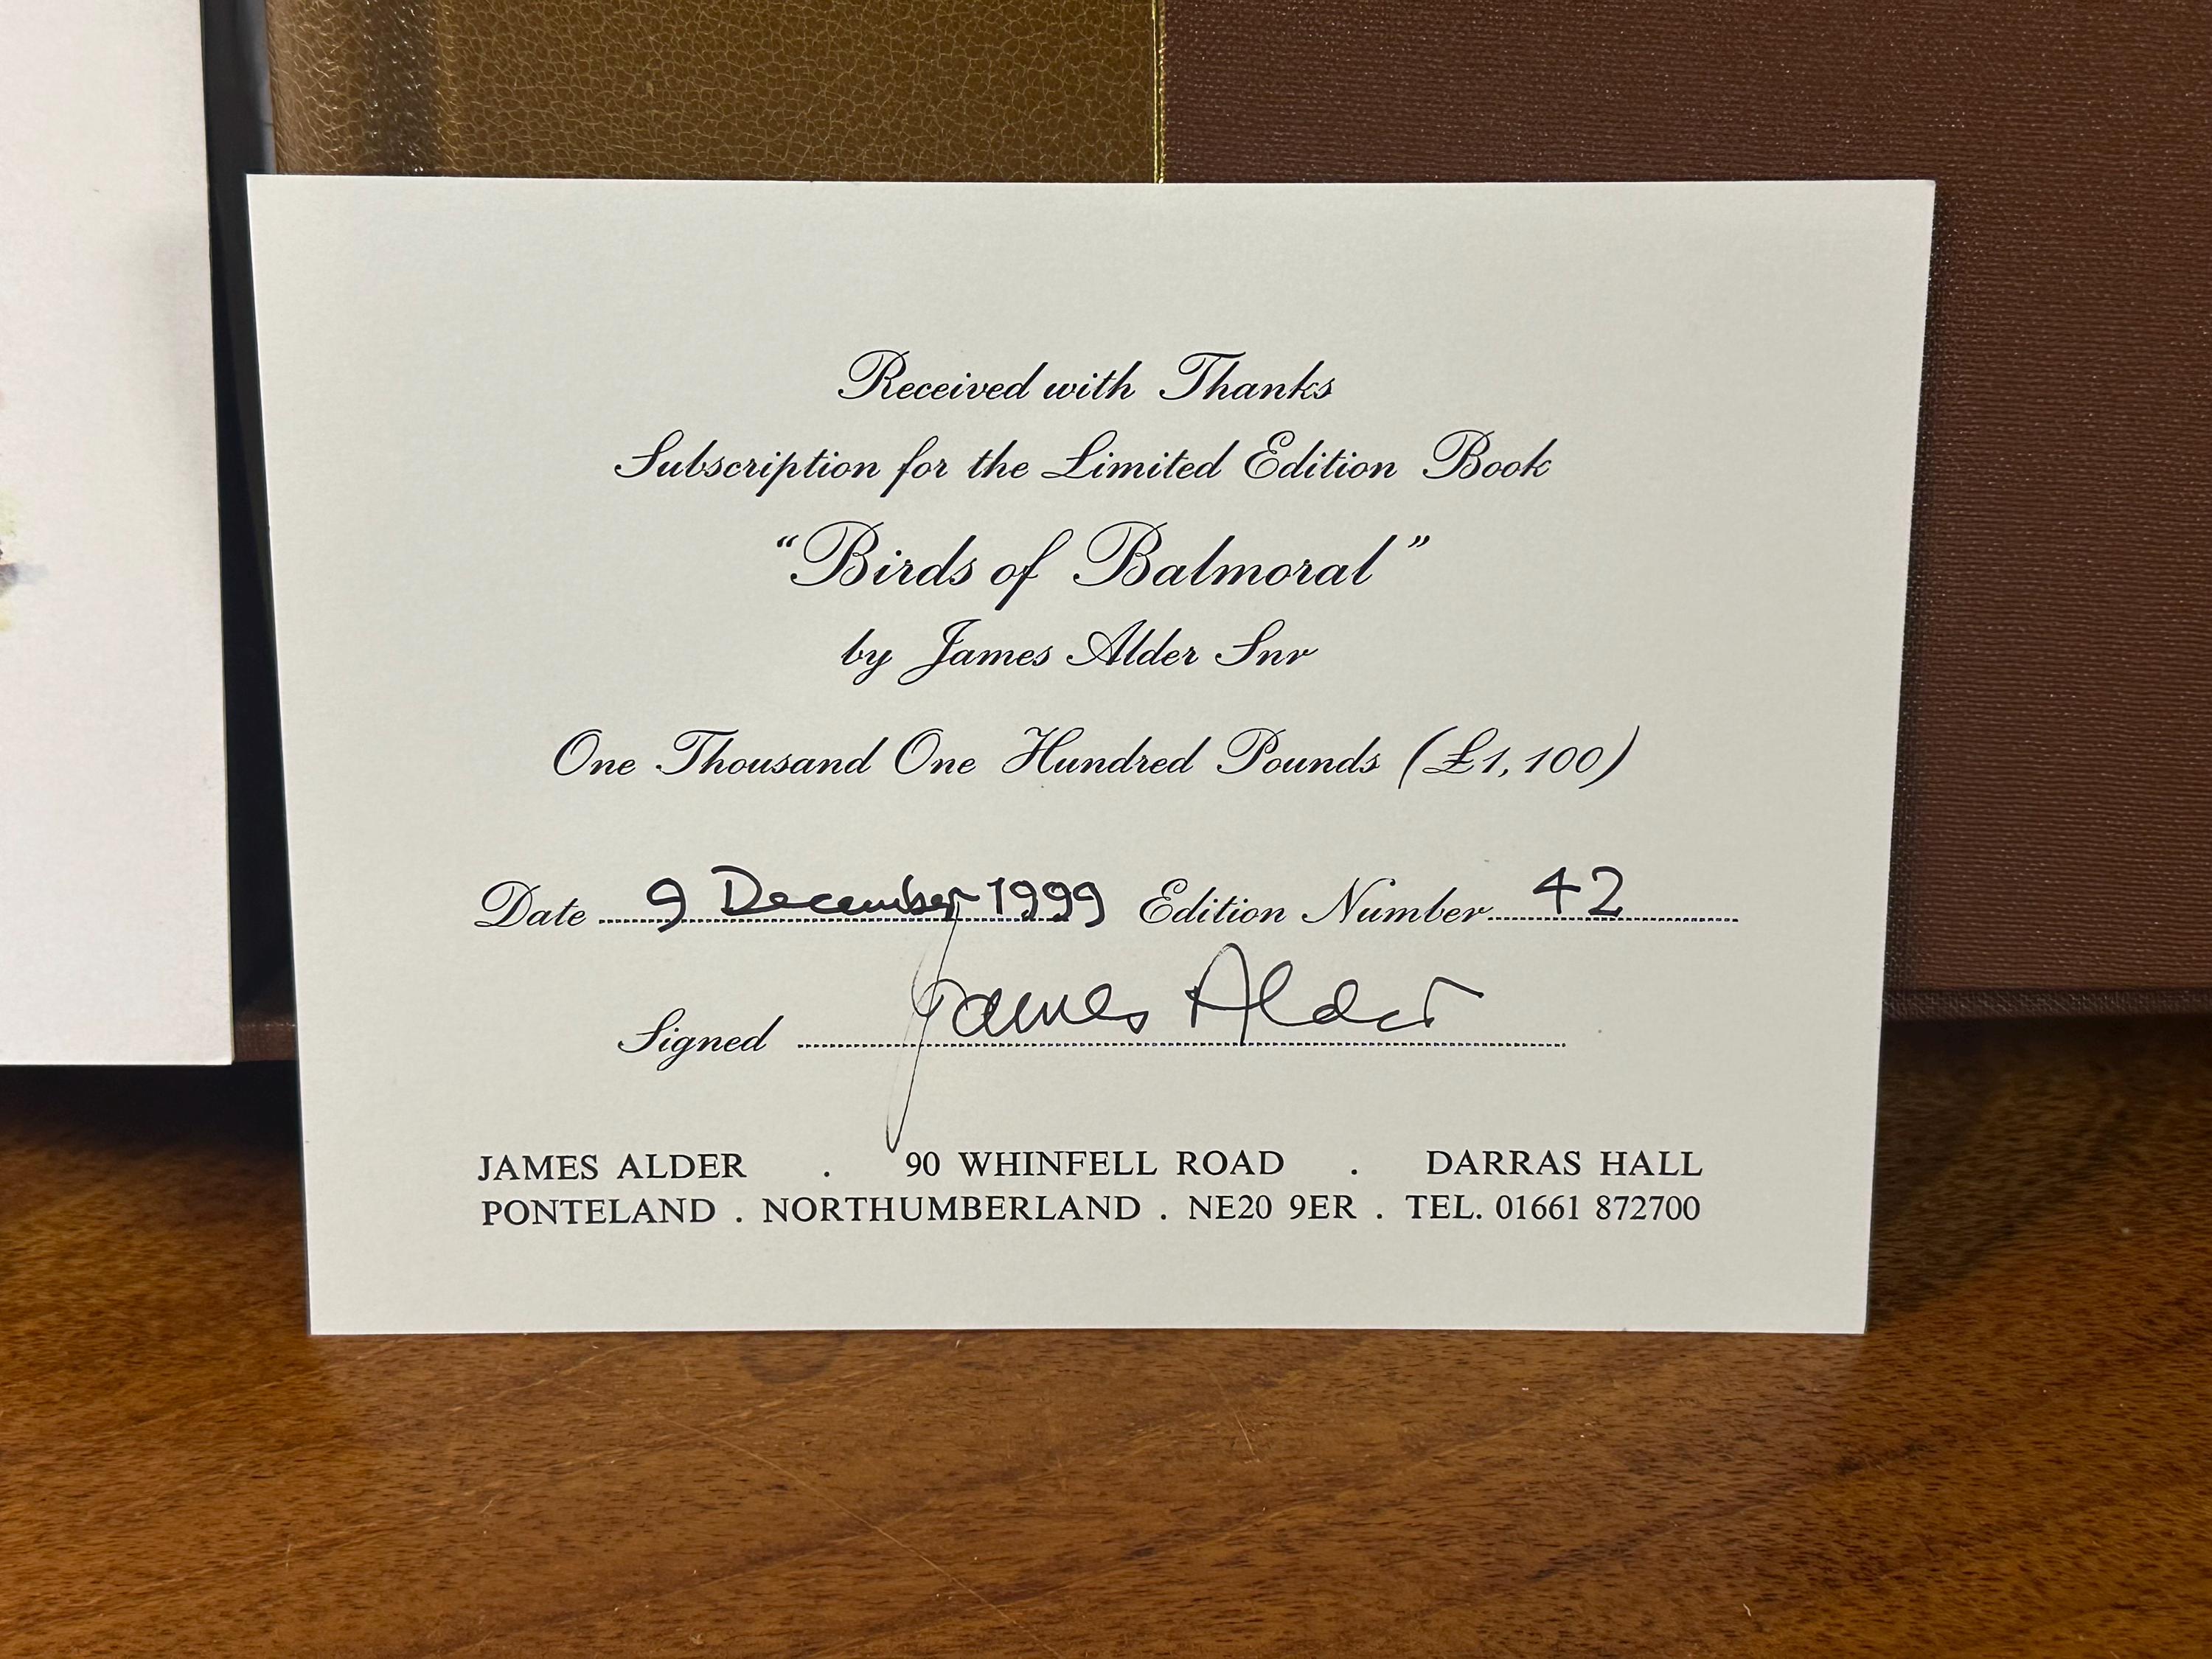 Received with Thanks
Subscription for the Limited Edition Book
“Birds of Balmoral”
by James Alder Snr
One Thousand One Hundred Pounds (£1,100)
Date 9 December 1999 Edition Number 42
Signed James Alder
JAMES ALDER . 90 WHINFELL ROAD . DARRAS HALL
PONTELAND . NORTHUMBERLAND . NE20 9ER . TEL. 01661 872700